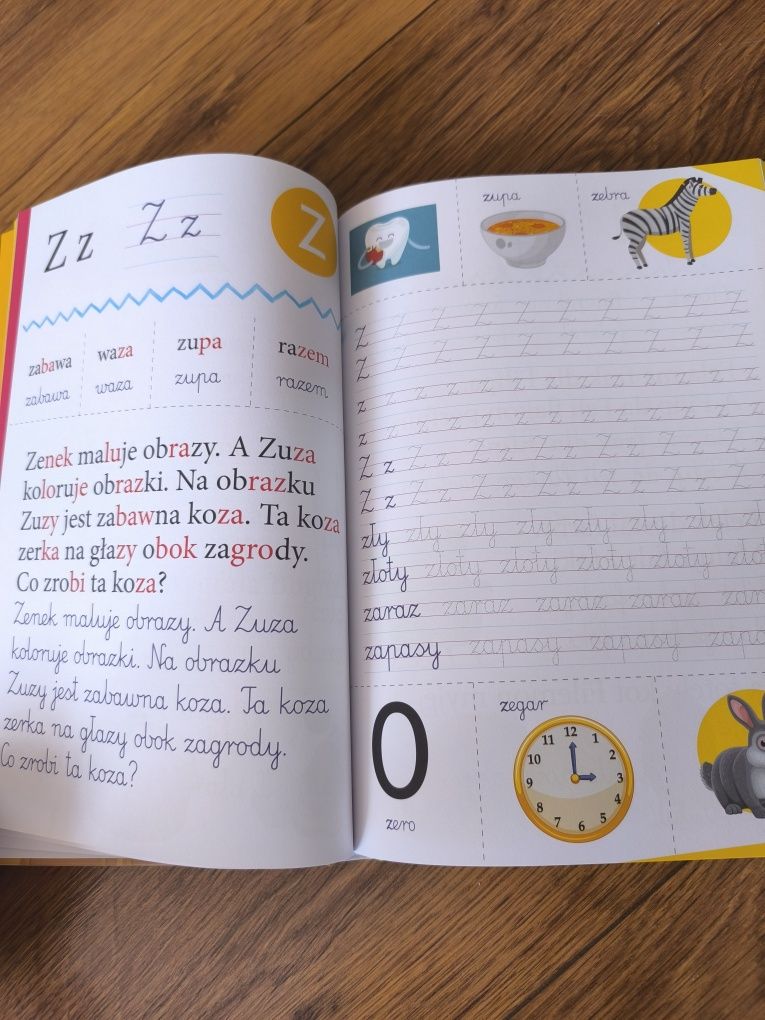 Z z Z z Z
zabawa waza zupa razem
zabawa waza zupa razem
Zenek maluje obrazy. A Zuza
koloruje obrazki. Na obrazku
Zuzy jest zabawna koza. Ta koza
zerka na głazy obok zagrody.
Co zrobi ta koza?
Zenek maluje obrazy. A Zuza
koloruje obrazki. Na obrazku
Zuzy jest zabawna koza. Ta koza
zerka na głazy obok zagrody.
Co zrobi ta koza?
zupa zebra
Z Z Z Z Z Z Z Z Z Z
Z Z Z Z Z Z Z Z Z Z
z z z z z z z z z z z
z z z z z z z z z z z
Z z Z z Z z Z z Z z Z z Z
Z z Z z Z z Z z Z z Z z Z
zły zły zły zły zły zły zły
złoty złoty złoty złoty złoty
zaraz zaraz zaraz zaraz
zapasy zapasy zapasy
0 zegar
12 1 2 3 4 5 6 7 8 9 10 11
zero